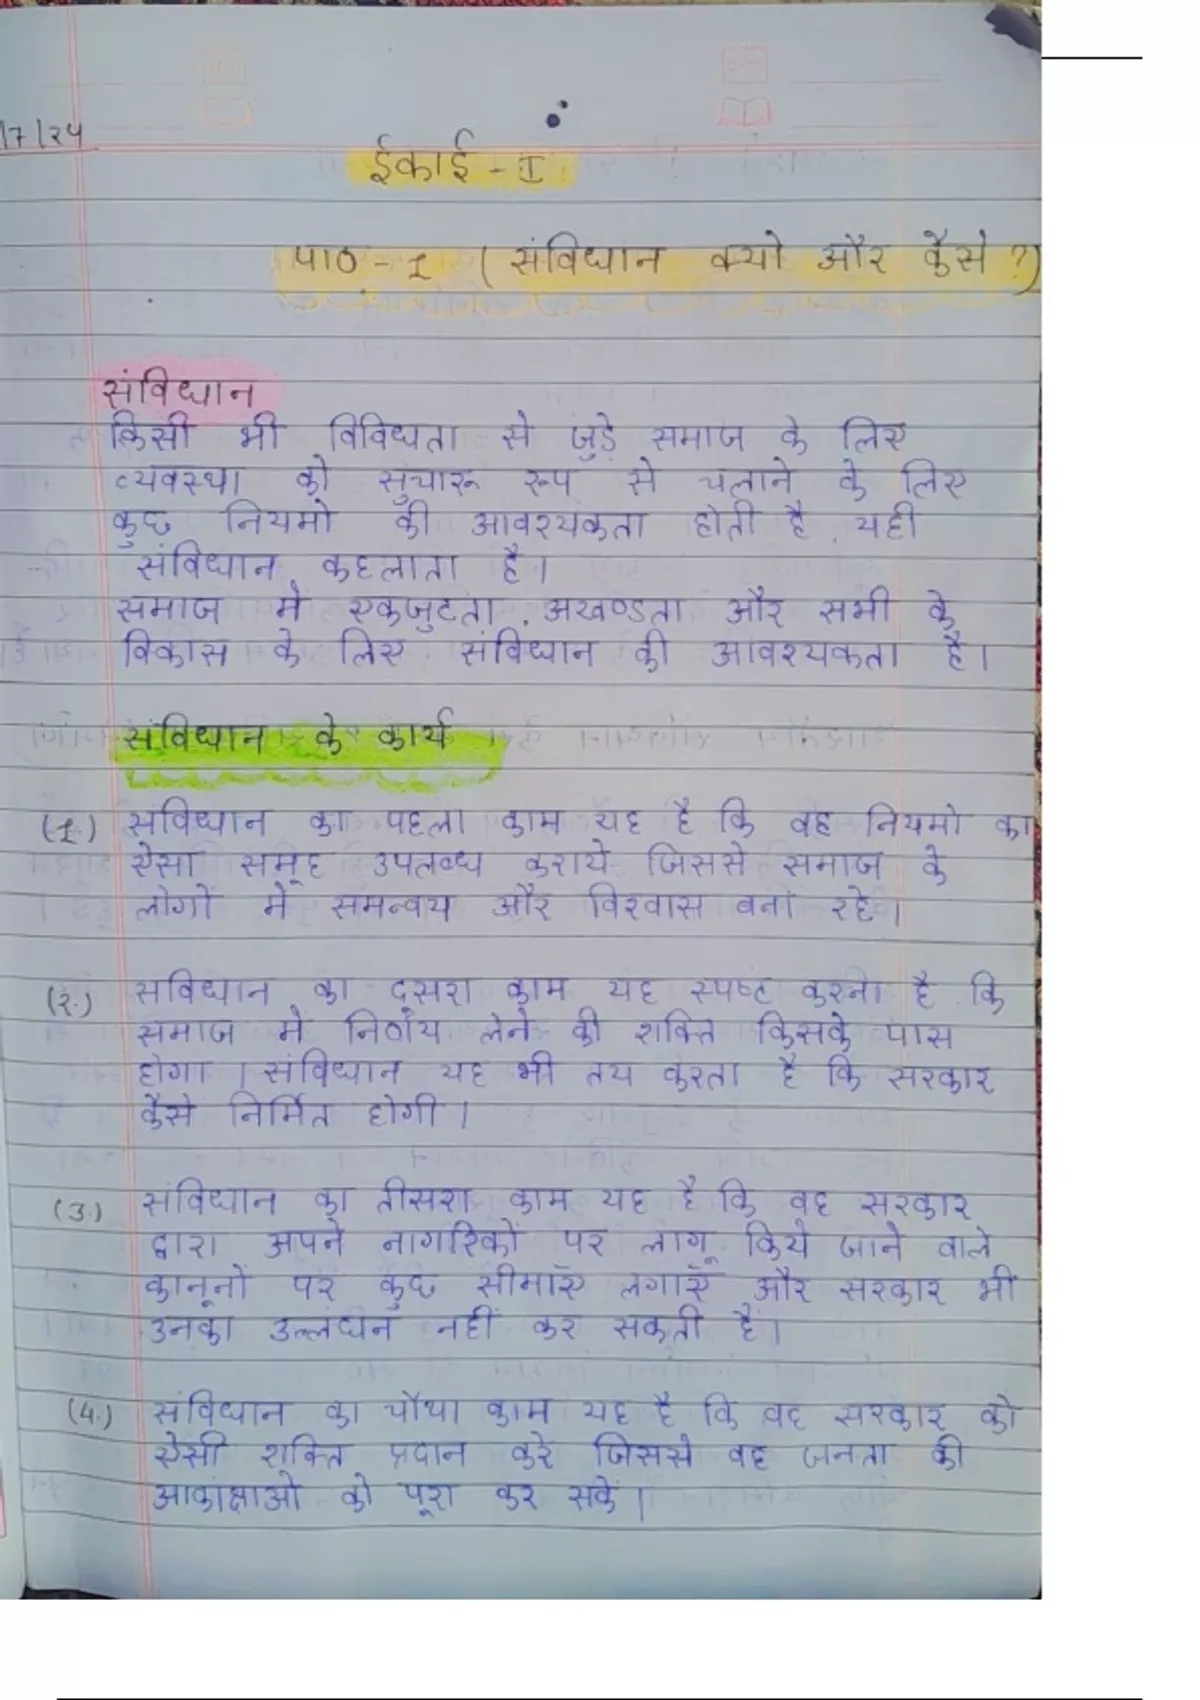 17/24
ईकाई - I
पाठ - 1 ( संविधान क्यो और कैसे ?)
संविधान
किसी भी विविधता से जुड़े समाज के लिए
व्यवस्था को सुचारू रूप से चलाने के लिए
कुछ नियमो की आवश्यकता होती है, यही
संविधान कहलाता है।
समाज मे एकजुटता, अखण्डता और सभी के
विकास के लिए संविधान की आवश्यकता है।
संविधान के कार्य
(1.) संविधान का पहला काम यह है कि वह नियमो का
ऐसा समूह उपलब्ध कराये जिससे समाज के
लोगों मे समन्वय और विश्वास बना रहे।
(2.) सविधान का दूसरा काम यह स्पष्ट करना है कि
समाज मे निर्णय लेने की शक्ति किसके पास
होगा । संविधान यह भी तय करता है कि सरकार
कैसे निर्मित होगी।
(3.) संविधान का तीसरा काम यह है कि वह सरकार
द्वारा अपने नागरिकों पर लागू किये जाने वाले
कानूनो पर कुछ सीमाएँ लगाएँ और सरकार भी
उनका उल्लंघन नहीं कर सकती है।
(4.) संविधान का चौथा काम यह है कि वह सरकार को
ऐसी शक्ति प्रदान करे जिससे वह जनता की
आकांक्षाओ को पूरा कर सकें।